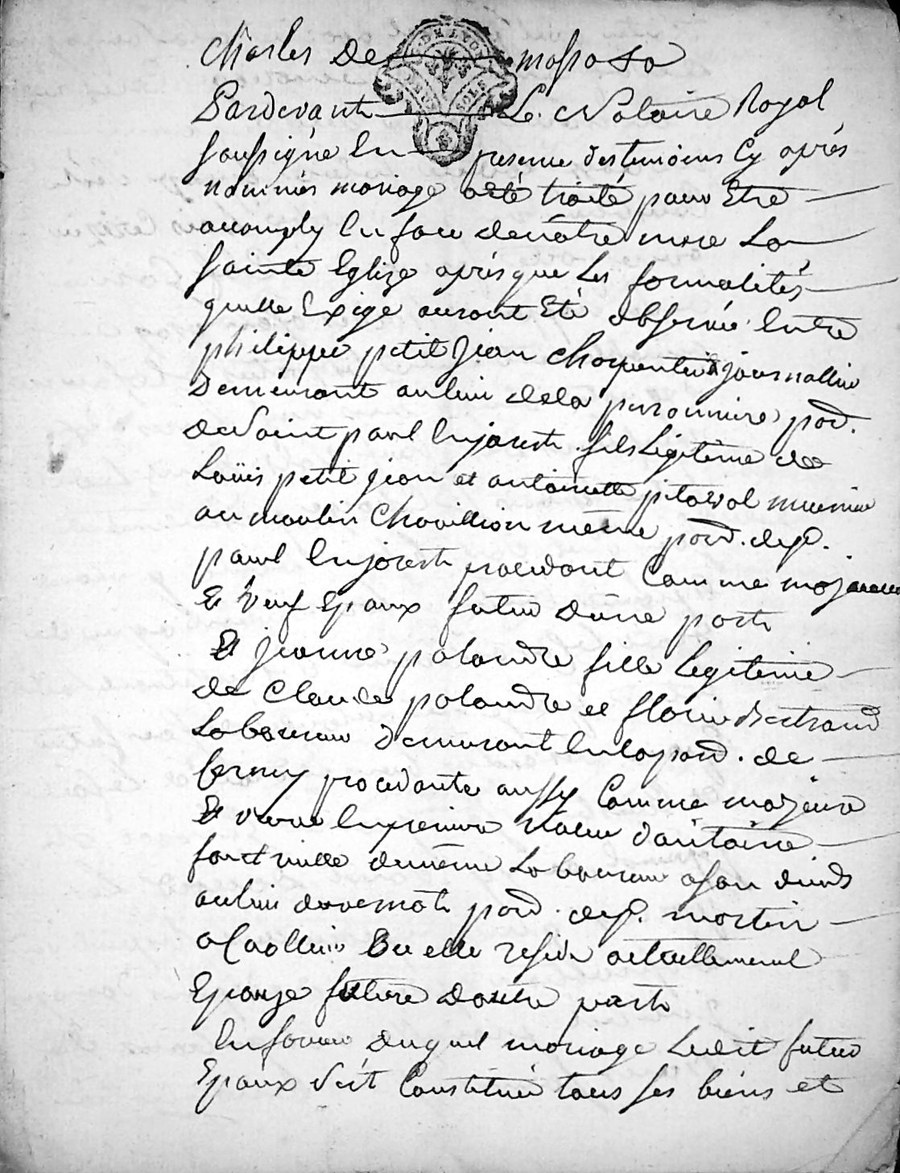 Charles De masso &a
Pardevant Le Notaire Royal
soussigné En presence des temoins Cy après
nommés mariage a eté traité pour Etre
accomply En face de nôtre mere La
sainte Eglize après que Les formalités
quelle Exige auront Eté observé Entre
philippe petit Jean Charpentier & journallier
Demeurant au lieu de la par.
de Saint paul Enjarest fils Legitime de
Loüis petit Jean et antoinette pitaval
au moulin Chovillion même par. de St.
paul Enjarest procedant Comme majeur
Et veuf Epoux futur d'une part
Et Jeanne palandre fille Legitime
de Claude palandre et florie Bertrand
Laboureur demeurant En la par. de
procedante aussy Comme majeure
Et veuve En premiere Noces d'antoine
de même Laboureur a son deceds
au lieu de par. de St. martin
Ou elle reside actuellement
Epouse future d'autre part
En faveur duquel mariage Ledit futur
Epoux s'est Constitué tous ses biens et
DE LYON